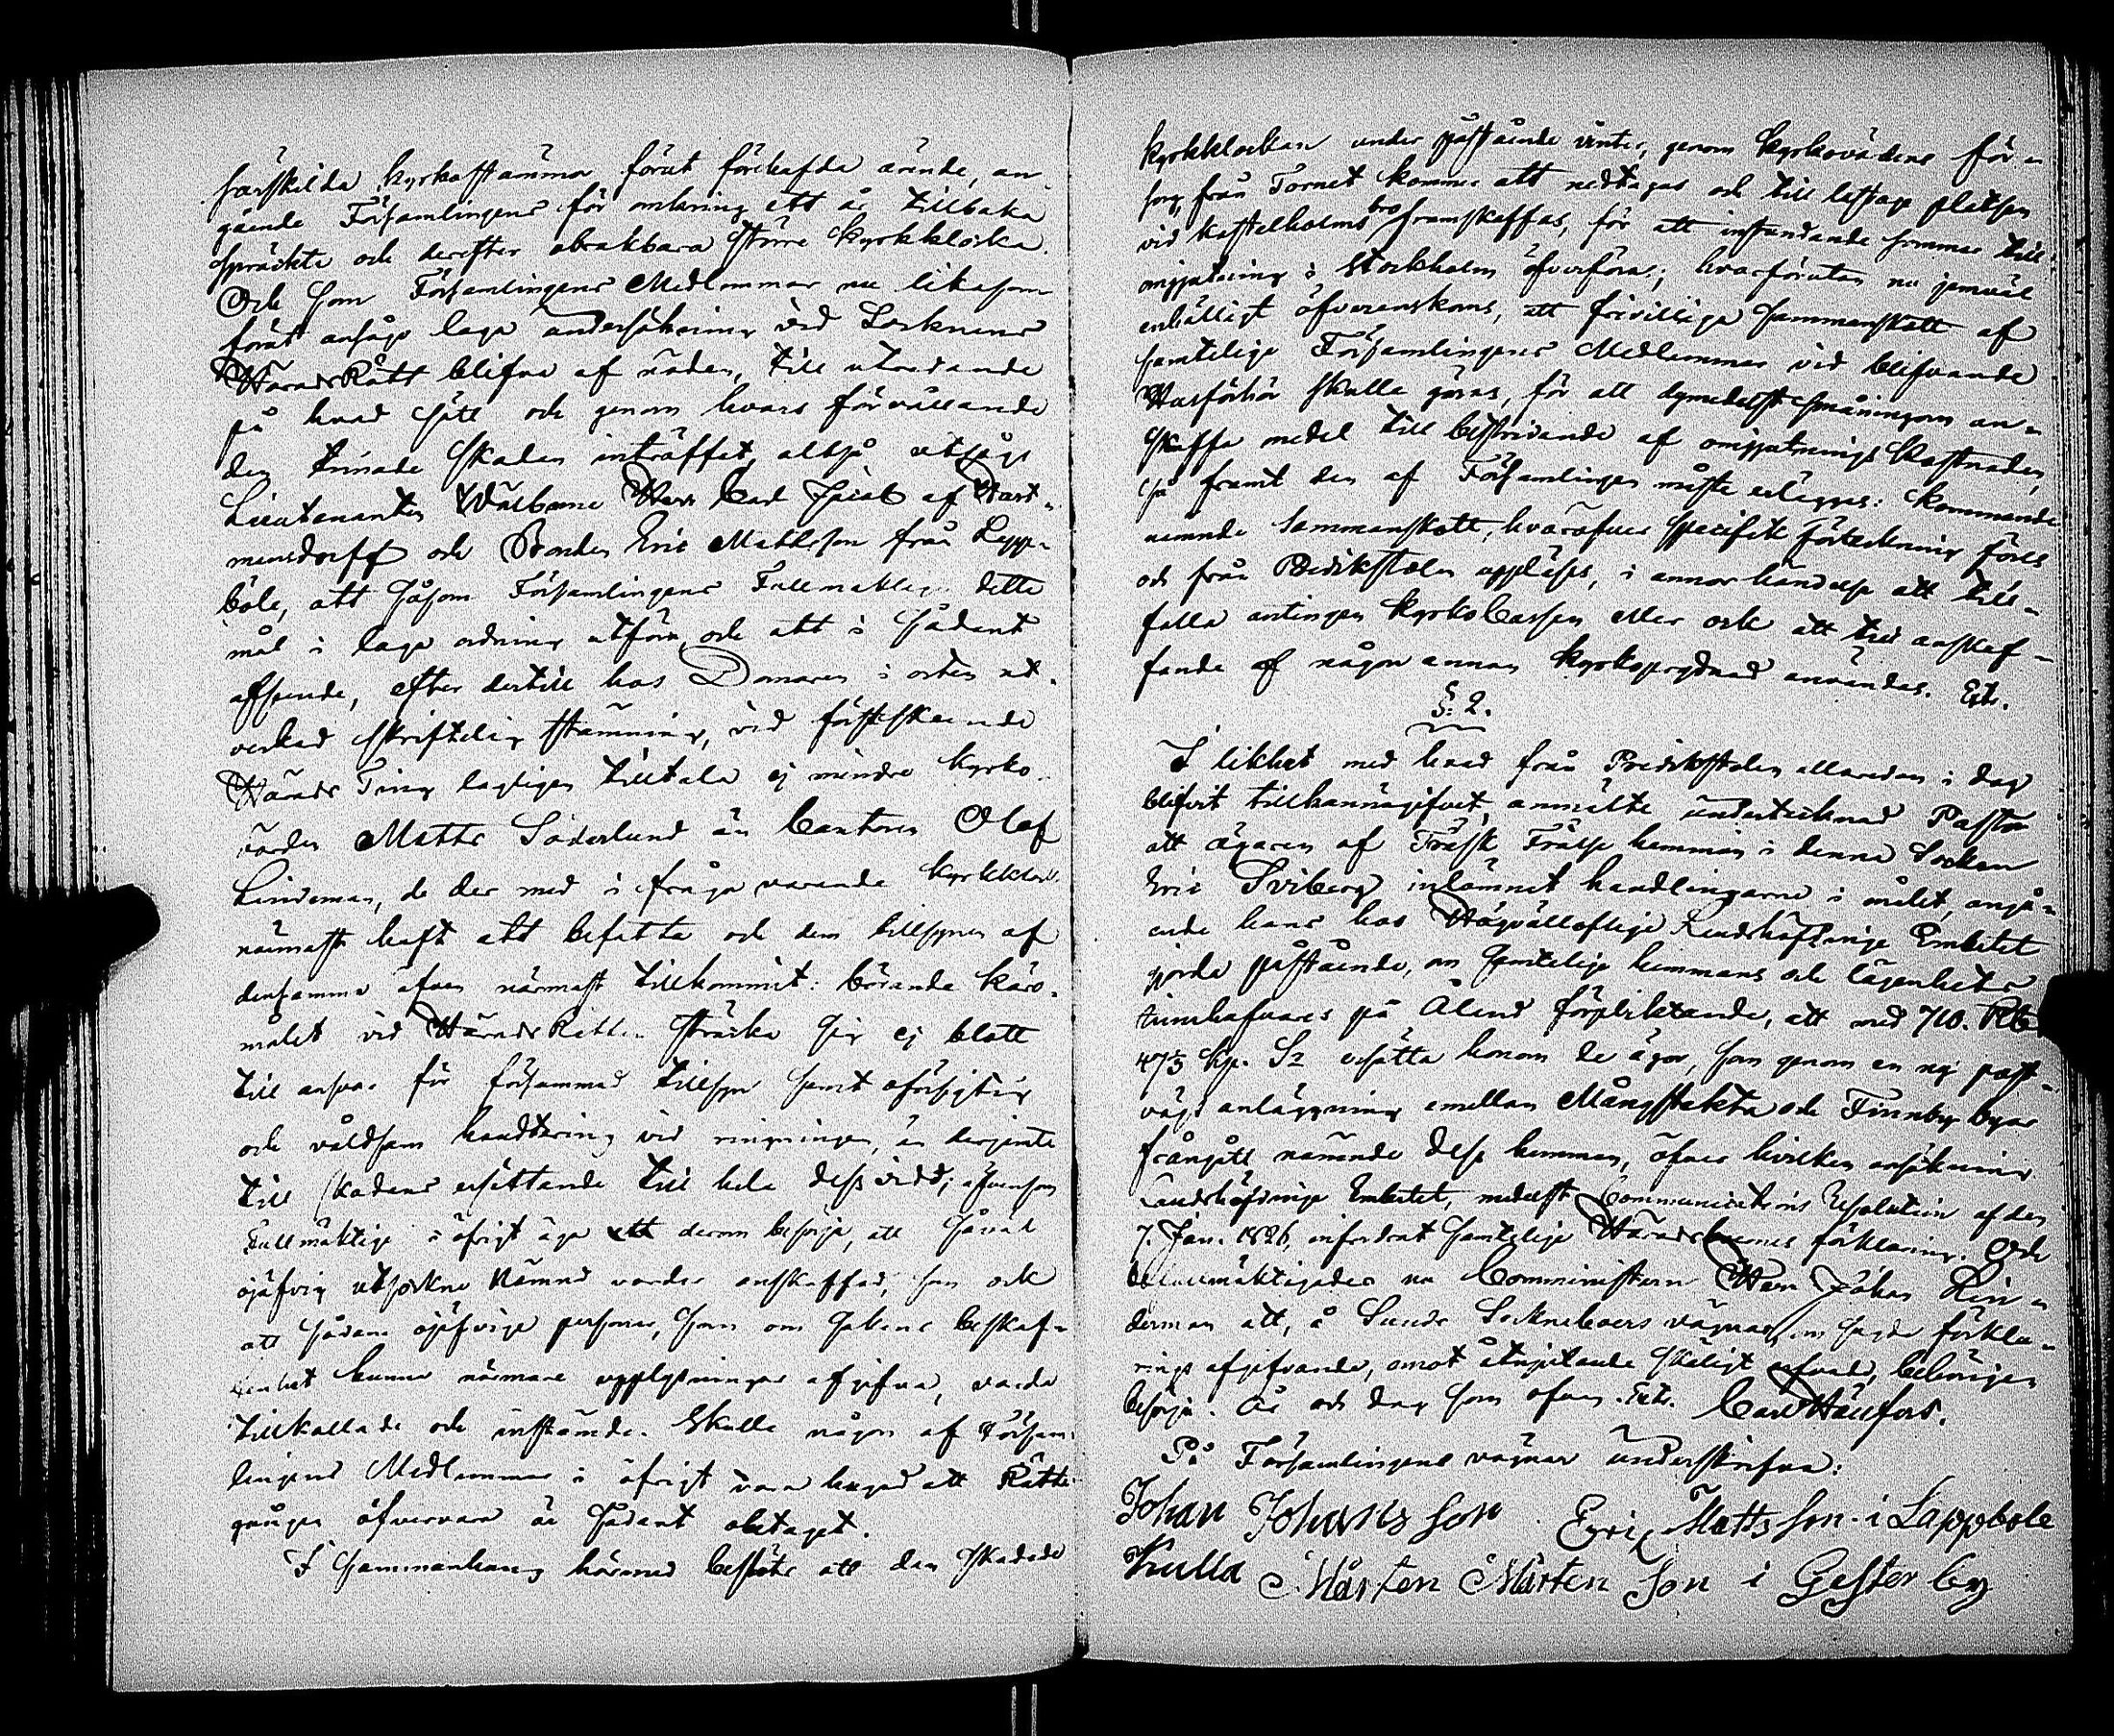 särskilda kyrkostämmor förut förehafda ärende, an-
gående Församlingens för omkring ett år tillbaka
spräckte och derefter obrukbara större kyrkklocka.
Och som Församlingens Medlemmar nu likasom
förut ansågo laga undersökning vid Socknens
HäradsRätt blifva af nöden, till utredande
på hvad sätt och genom hvars förvållande
den timade skaden inträffat, altså utsågs
Lieutenanten Wälborne Herr Carl Jacob af
och Bonden Eric Mattsson från Lapp-
böle, att såsom Församlingens Fullmäktige detta
mål i laga ordning utföra och att i sådant
afseende, efter dertill hos Domaren i orten ut-
verkad skriftelig stämning, vid förstskeende
Härads Ting lagligen tilltala ej mindre kyrko-
värden Matts Söderlund än Cantorn Olof
Lindeman, de der med i fråga varande kyrkklocka
närmast haft att befatta och dem tillsynen af
densamma äfven närmast tillkommit: börande käro-
målet vid HäradsRätten sträcka sig ej blott
till ansvar för försummad tillsyn samt oförsigtig
och våldsam handtering vid ringningen, än derjemte
till skadans ersättande till hela dess vidd; äfvensom
Fullmäktige i öfrigt äga att derom besörja, att såväl
ojäfvig utsockne Nämnd varder anskaffad, som ock
att sådane ojäfvige personer, som om sakens beskaf-
fenhet kunna närmare upplysningar afgifva, varda
tillkallade och instämde. Skulle någon af Försam-
lingens Medlemmar i öfrigt vara hugad att Rätte-
gången öfvervara är sådant obetaget.
I sammanhang härmed beslöts att den skadade
kyrkklockan under påstående vinter, genom kyrkovärdens för-
sorg från Tornet kommer att nedtagas och till lastage platsen
vid Kastelholms bro framskaffas, för att instundande sommar till
omgjutning i Stockholm öfverföras; hvarförutan nu jemväl
enhälligt öfverenskoms, att frivillige sammanskott af
samtelige Församlingens Medlemmar vid blifvande
Husförhör skulle göras, för att dymedelst småningom an-
skaffa medel till bestridande af omgjutnings kostnaden,
så framt den af Församlingen måste erläggas: kommande
nemnde sammanskott, hvaröfver specifik förteckning föres
och från Predikstolen uppläses, i annor händelse att till-
falla antingen kyrkoCassan eller ock att till anskaf-
fande af någon annan kyrkoprydnad användas.
§: 2.
I likhet med hvad från Predikstolen allaredan i dag
blifvit tillkännagifvet, anmälte undertecknad Pastor
att ägaren af Träsk Frälse hemman i denna Socken
Eric Sviberg inlämnat handlingarne i målet, angå-
ende hans hos Högvällofliga Landshöfdinge Embetet
gjorda påstående, om samtelige hemmans och lägenhets
innehafvares på Åland förpliktande, att med 710. Rb.
47⅓ kop. Sr ersätta honom de ägor, som genom en ny post-
vägs anläggning emellan Mångstekta och Finnby byar
frångått nämnde dess hemman, öfver hvilken ansökning
Landshöfdinge Embetet, medelst Communications Resolution af den
7. Jan. 1826, infordrat samtelige Häradsboernes förklaring. Och
befullmäktigades nu Comministern Herr Johan Lin-
derman att, å Sunds Sockneboers vägnar, om sagde förkla-
rings afgifvande, emot åtnjutande skäligt arfvode, behörigen
besörja. År och dag som ofvan. Carl Hänfors.
På Församlingens vägnar underskrifva:
Johan Johans Son Eric Matts Son i Lappbole
Kulla Mårten Mårten Son i Gesterby